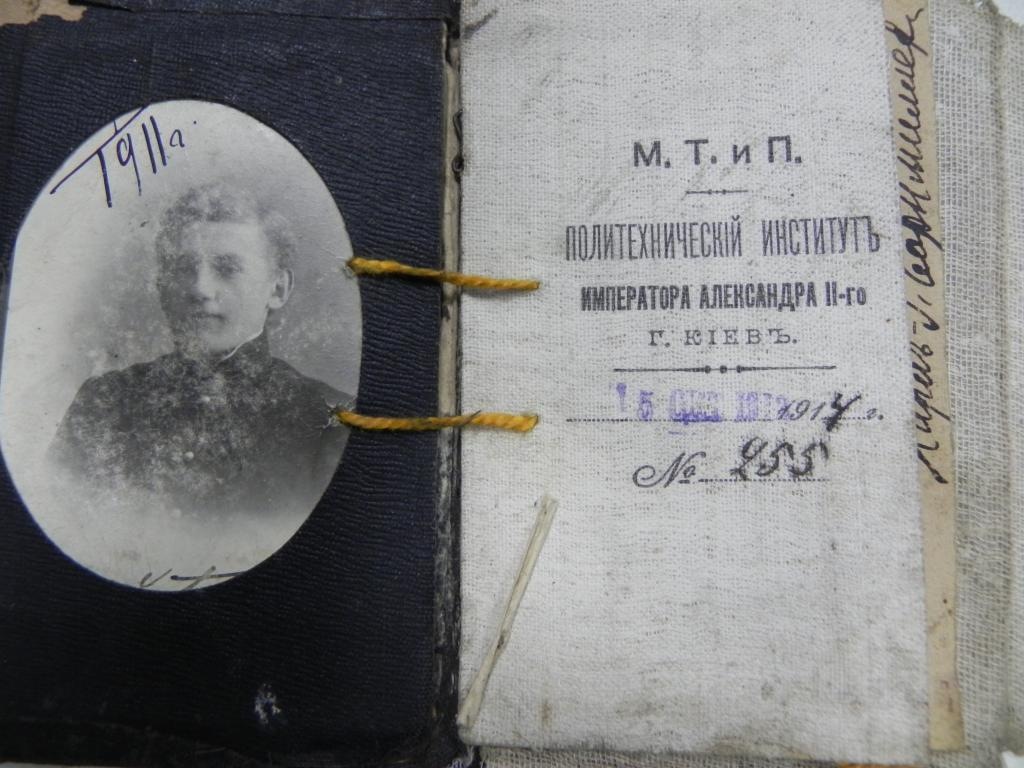 1911 г.
М. Т. и П.
ПОЛИТЕХНИЧЕСКІЙ ИНСТИТУТЪ
ИМПЕРАТОРА АЛЕКСАНДРА II-го
Г. КІЕВЪ.
15 1914 г.
№ 255